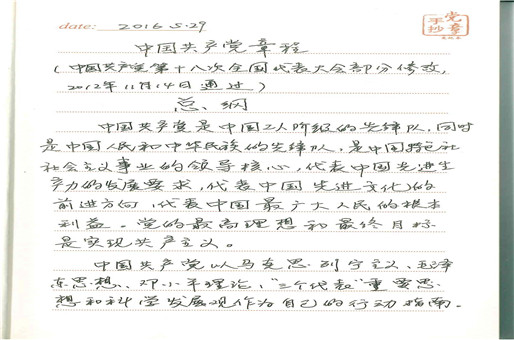 date: 2016.5.29
手抄党章
中国共产党章程
(中国共产党第十八次全国代表大会部分修改,
2012年11月14日通过)
总、纲
中国共产党是中国工人阶级的先锋队,同时
是中国人民和中华民族的先锋队,是中国特色社
社会主义事业的领导核心,代表中国先进生
产力的发展要求,代表中国先进文化的
前进方向,代表中国最广大人民的根本
利益。党的最高理想和最终目标
是实现共产主义。
中国共产党以马克思列宁主义、毛泽
东思想、邓小平理论、"三个代表"重要思
想和科学发展观作为自己的行动指南。